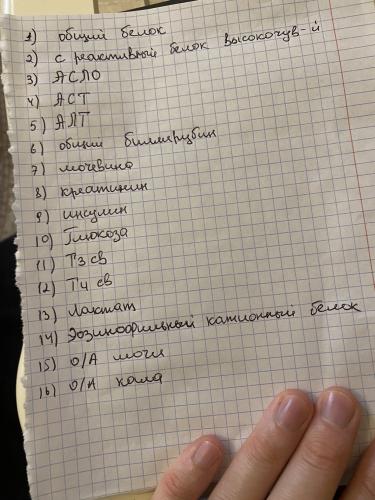 1) общий белок
2) с реактивный белок высокочув-й
3) АСЛО
4) АСТ
5) АЛТ
6) общий билирубин
7) мочевина
8) креатинин
9) инсулин
10) Глюкоза
11) Т3 св
12) Т4 св
13) Лактат
14) Эозинофильный катионный белок
15) О/А мочи
16) О/А кала